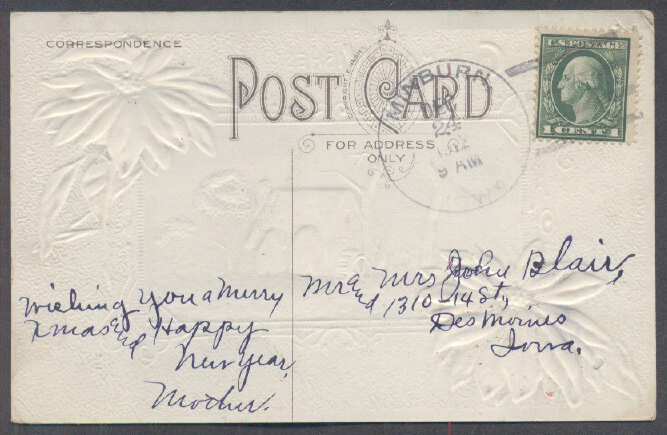 CORRESPONDENCE
POST CARD
FOR ADDRESS
ONLY
MINBURN
DEC
24
1912
9 AM
U.S. POSTAGE
1 CENT 1
Wishing you a Merry
Xmas and Happy
New Year,
Mother.
Mr and Mrs John Blair,
1310-14 St,
Des Moines
Iowa.